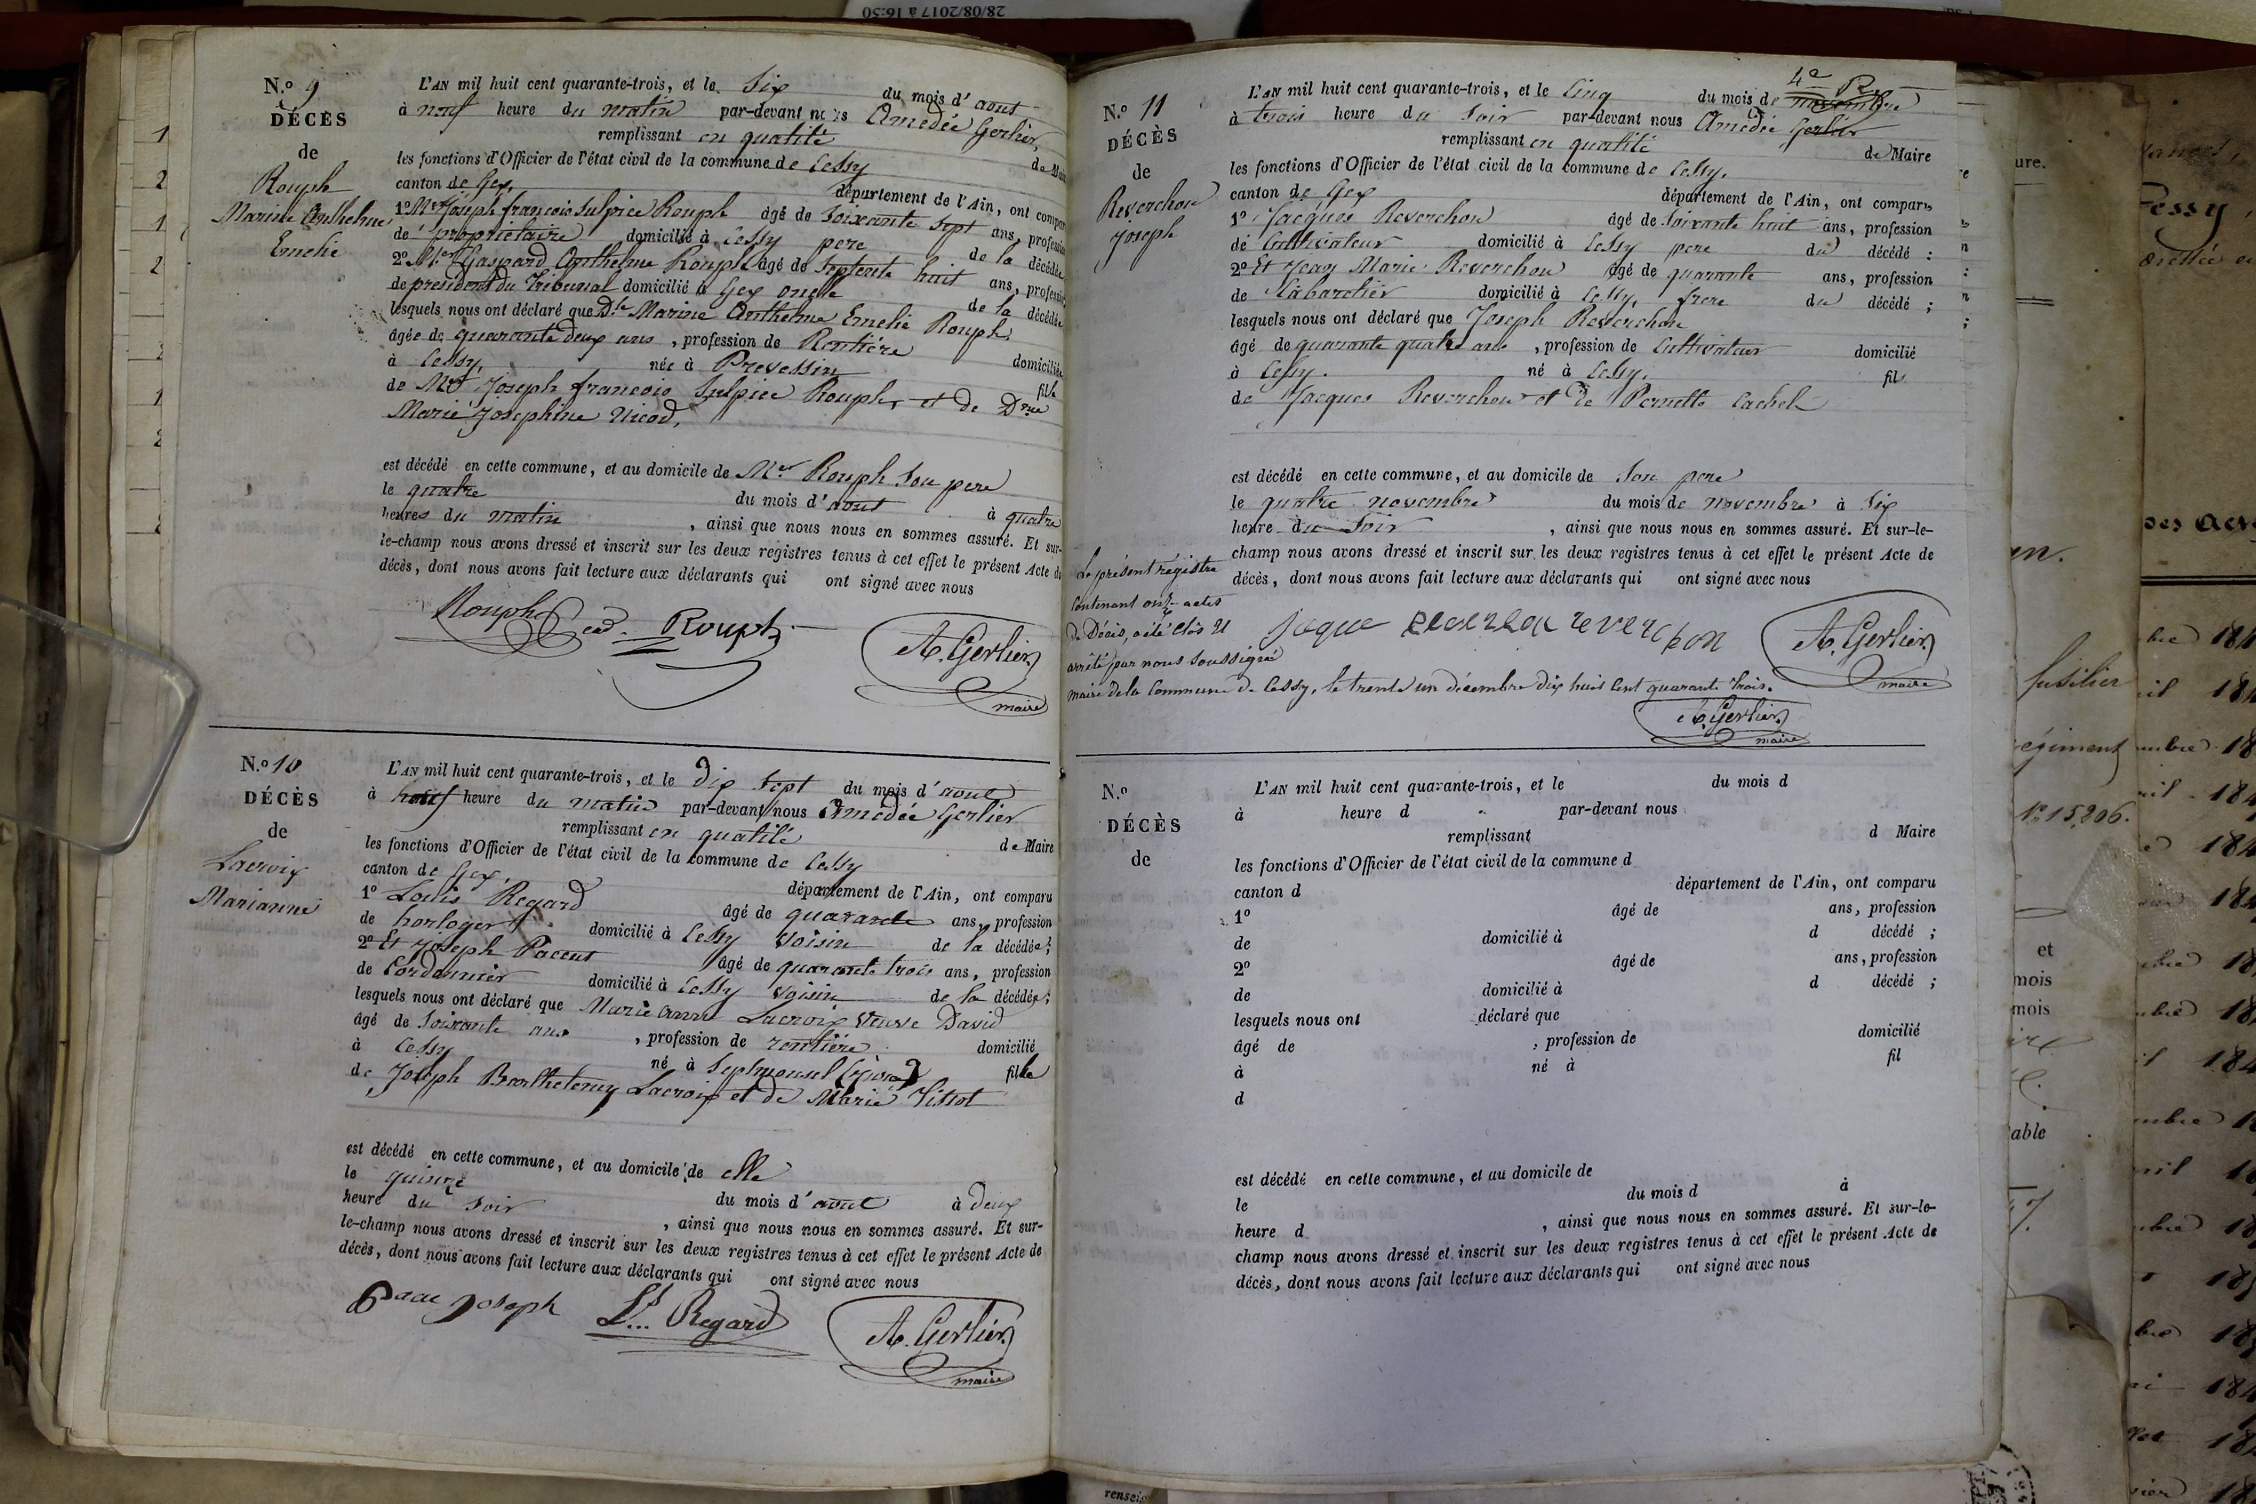 28/08/2017 à 16:50
N.º 9
DÉCÈS
de
Rouph
Marine Anthelme
Emelie
L'AN mil huit cent quarante-trois, et le Six du mois d'aout
à neuf heure du matin par-devant nous Amedée Gerlier,
remplissant en qualité de Maire
les fonctions d'Officier de l'état civil de la commune de Cessy
canton de Gex, département de l'Ain, ont comparu
1º Mr Joseph françois Sulpice Rouph âgé de Soixante sept ans, profession
de propriétaire domicilié à Cessy pere de la décédée
2º Mr Gaspard Anthelme Rouph âgé de septente huit ans, profession
de président du Tribunal domicilié à Gex oncle de la décédée
lesquels nous ont déclaré que Dle Marine Anthelme Emelie Rouph
âgée de quarante deux ans, profession de Rentière domiciliée
à Cessy, née à Prevessin fille
de Mr Joseph françois Sulpice Rouph, et de Dme
Marie Josephine Nicod,
est décédé en cette commune, et au domicile de Mr Rouph Son pere
le quatre du mois d'aout à quatre
heures du matin, ainsi que nous nous en sommes assuré. Et sur-
le-champ nous avons dressé et inscrit sur les deux registres tenus à cet effet le présent Acte de
décès, dont nous avons fait lecture aux déclarants qui ont signé avec nous
Rouph Rouph
A. Gerlier
maire
N.º 10
DÉCÈS
de
Lacroix
Marianne
L'AN mil huit cent quarante-trois, et le dix sept du mois d'aout
à neuf heure du matin par-devant nous Amedée Gerlier
remplissant en qualité de Maire
les fonctions d'Officier de l'état civil de la commune de Cessy
canton de Gex, département de l'Ain, ont comparu
1º Louis Regard âgé de quarante ans, profession
de horloger domicilié à Cessy voisin de la décédée;
2º Et Joseph Paccut âgé de quarante trois ans, profession
de Cordonnier domicilié à Cessy voisin de la décédée;
lesquels nous ont déclaré que Marie anne Lacroix veuve David
âgé de Soixante ans, profession de rentière domicilié
à Cessy né à Septmoncel (Jura) fille
de Joseph Barthelemy Lacroix et de Marie Tissot
est décédé en cette commune, et au domicile de elle
le quinze du mois d'aout à deux
heure du soir, ainsi que nous nous en sommes assuré. Et sur-
le-champ nous avons dressé et inscrit sur les deux registres tenus à cet effet le présent Acte de
décès, dont nous avons fait lecture aux déclarants qui ont signé avec nous
Joseph Ls... Regard
A. Gerlier
maire
N.º 11
DÉCÈS
de
Reverchon
Joseph
L'AN mil huit cent quarante-trois, et le Cinq du mois de novembre
à trois heure du Soir par-devant nous Amedée Gerlier
remplissant en qualité de Maire
les fonctions d'Officier de l'état civil de la commune de Cessy,
canton de Gex département de l'Ain, ont comparu
1º Jacques Reverchon âgé de Soixante huit ans, profession
de Cultivateur domicilié à Cessy pere du décédé;
2º Et Jean Marie Reverchon âgé de quarante ans, profession
de Cabaretier domicilié à Cessy, frere du décédé;
lesquels nous ont déclaré que Joseph Reverchon
âgé de quarante quatre ans, profession de Cultivateur domicilié
à Cessy. né à Cessy, fils
de Jacques Reverchon et de Pernette Cachet
est décédé en cette commune, et au domicile de Son pere
le quatre novembre du mois de novembre à Six
heure du Soir, ainsi que nous nous en sommes assuré. Et sur-le-
champ nous avons dressé et inscrit sur les deux registres tenus à cet effet le présent Acte de
décès, dont nous avons fait lecture aux déclarants qui ont signé avec nous
Le présent registre
Contenant onze actes
de Décès, a été Clos Et
arrêté par nous Soussigné
maire de la Commune de Cessy, le trente un décembre dix huit Cent quarante trois.
reverchon
A. Gerlier
maire
A. Gerlier
maire
N.º
DÉCÈS
de
L'AN mil huit cent quarante-trois, et le du mois d
à heure d par-devant nous
remplissant d Maire
les fonctions d'Officier de l'état civil de la commune d
canton d département de l'Ain, ont comparu
1º âgé de ans, profession
de domicilié à d décédé;
2º âgé de ans, profession
de domicilié à d décédé;
lesquels nous ont déclaré que
âgé de, profession de domicilié
à né à fil
d
est décédé en cette commune, et au domicile de
le du mois d à
heure d, ainsi que nous nous en sommes assuré. Et sur-le-
champ nous avons dressé et inscrit sur les deux registres tenus à cet effet le présent Acte de
décès, dont nous avons fait lecture aux déclarants qui ont signé avec nous
fusilier
Nº 15,206.
et
mois
mois